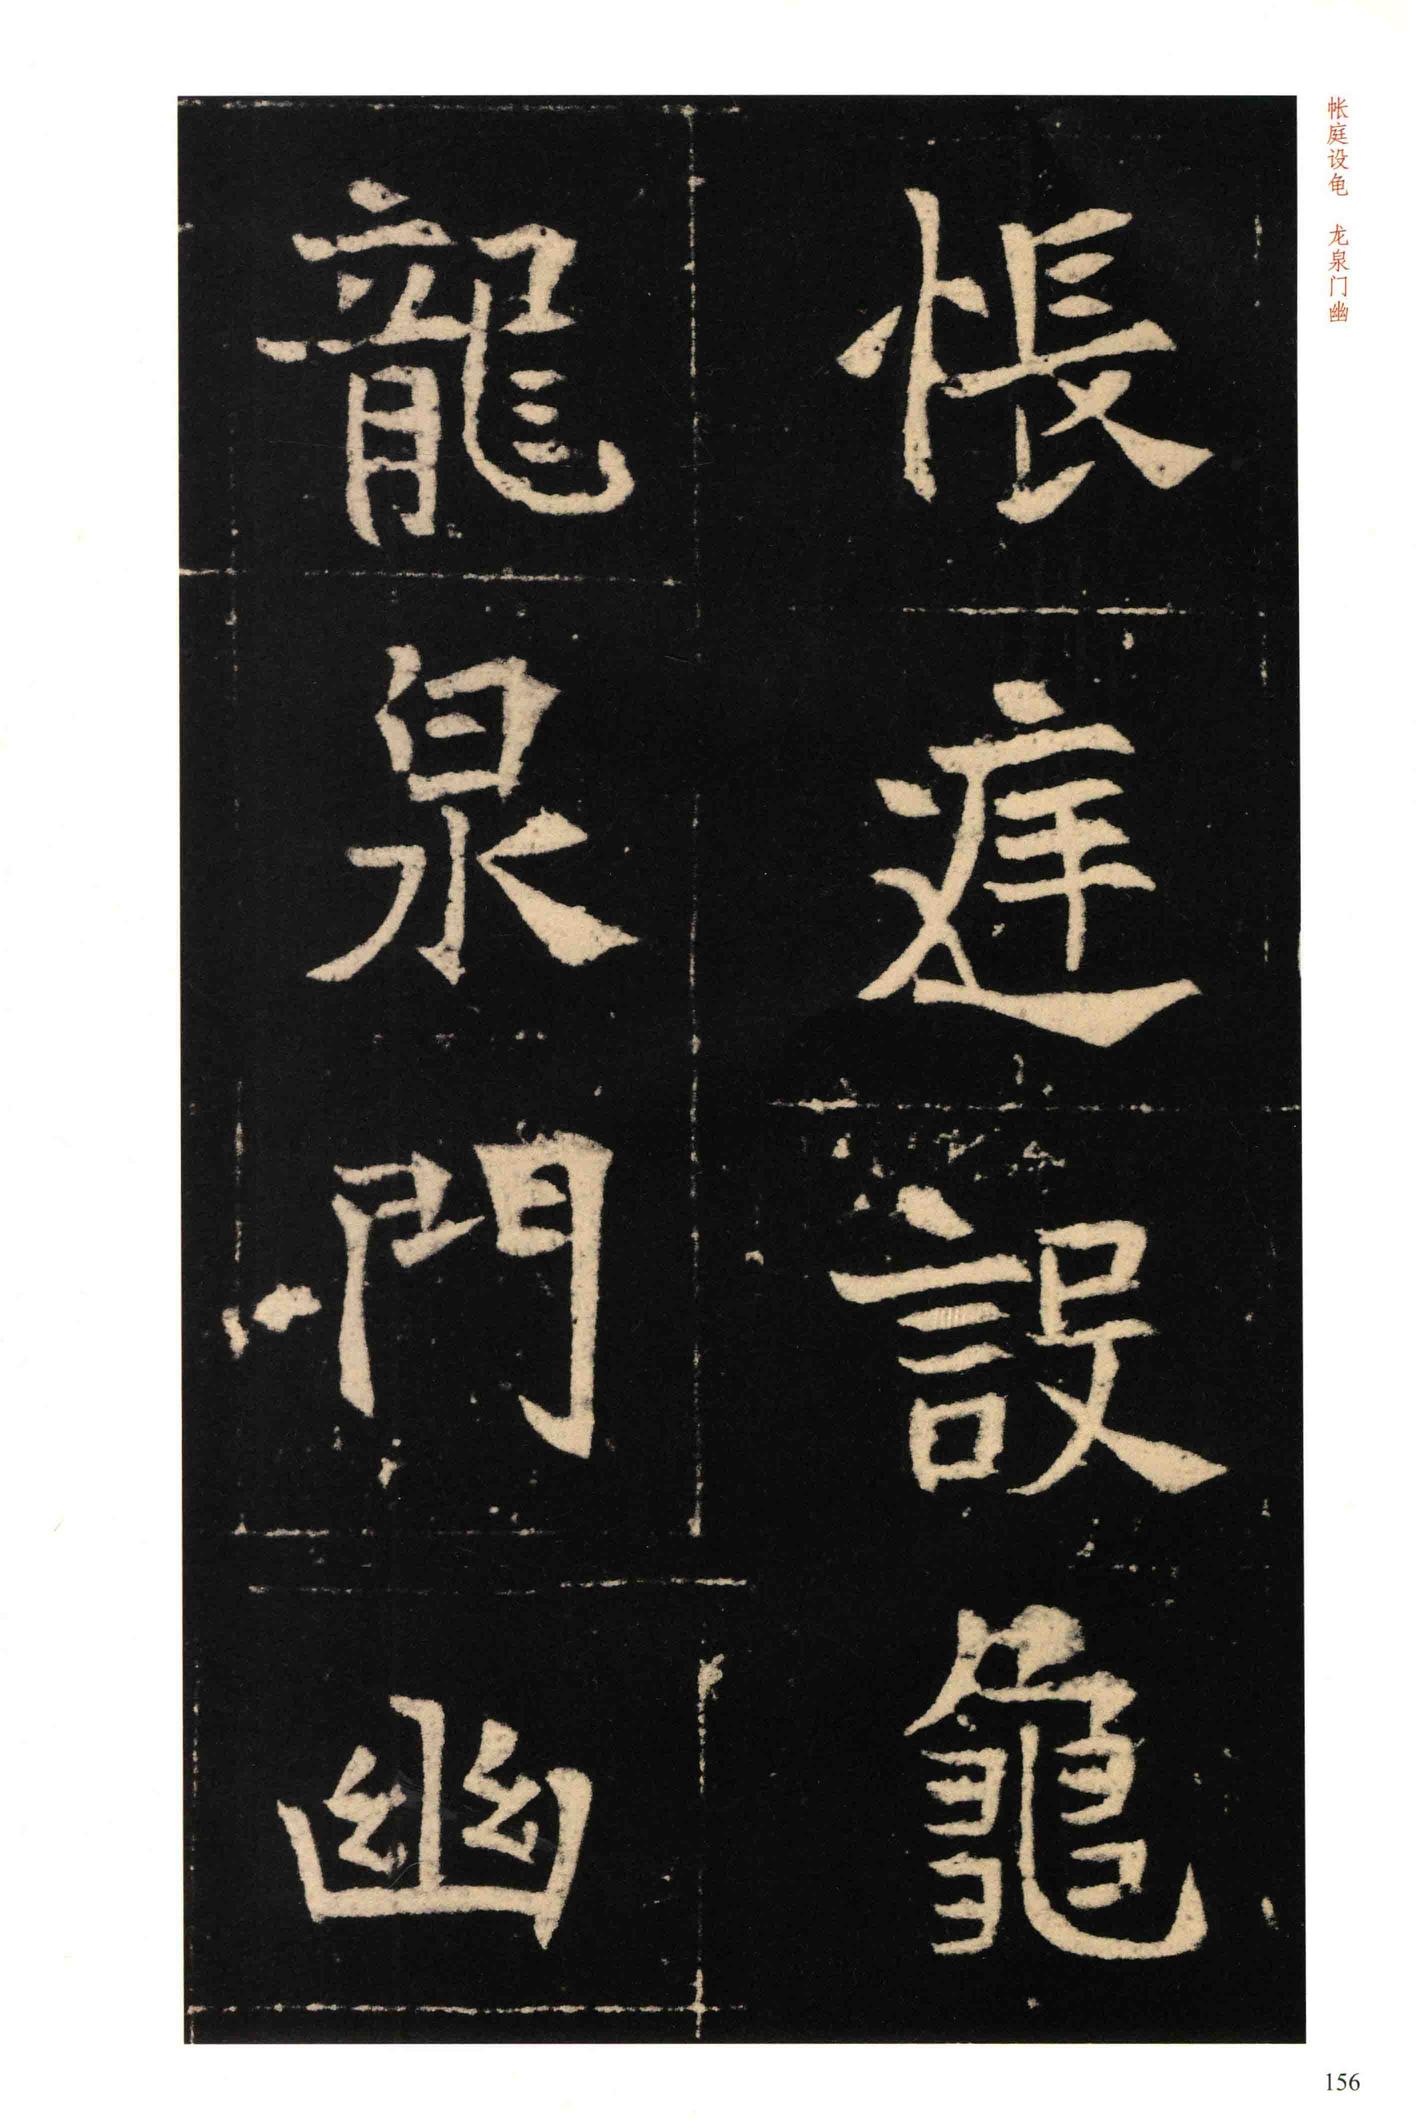 帐庭设龟 龙泉门幽
帳庭設龜
龍泉門幽
156